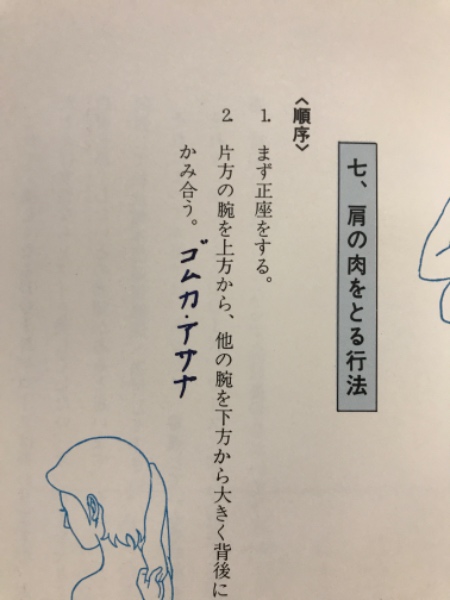 七、肩の肉をとる行法
〈順序〉
1. まず正座をする。
2. 片方の腕を上方から、他の腕を下方から大きく背後に
かみ合う。
ゴムカ・アサナ